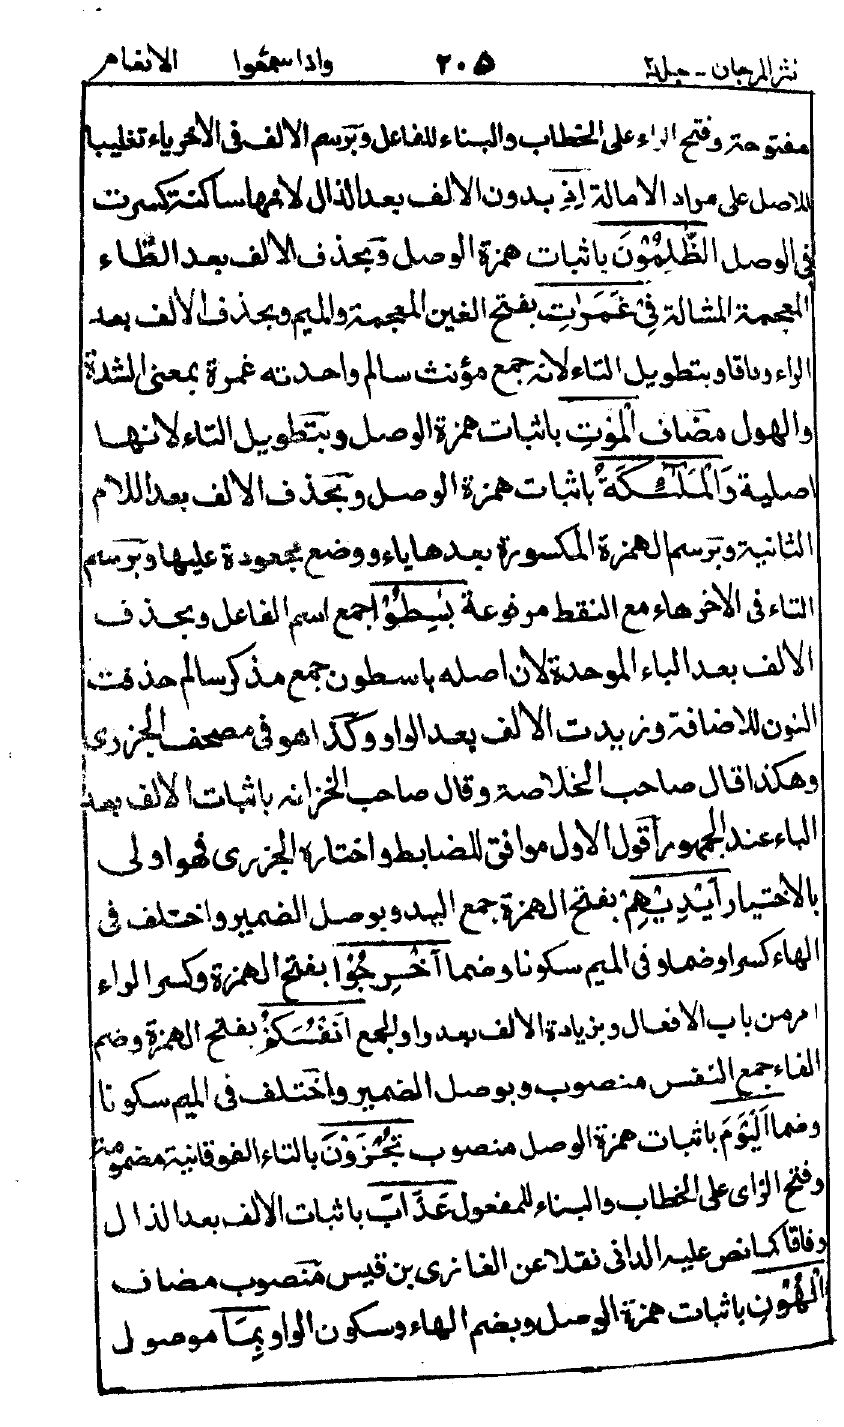 نثر المرجان - جلد ٢ ٢٠٥ واذا سمعوا الانعام
مفتوحة وفتح الراء على الخطاب والبناء للفاعل وبرسم الالف فى الاخر ياء تغليبا
للاصل على مراد الامالة اِذِ بدون الالف بعد الذال لانها ساكنة كسرت
فى الوصل الظّٰلِمُوْنَ باثبات همزة الوصل وبحذف الالف بعد الظاء
المعجمة المشالة فِىْ غَمَرٰتِ بفتح الغين المعجمة والميم وبحذف الالف بعد
الراء وفاقا وبتطويل التاء لانه جمع مؤنث سالم واحدته غمرة بمعنى الشدة
والهول مضاف الْمَوْتِ باثبات همزة الوصل وبتطويل التاء لانها
اصلية وَالْمَلٰٓئِكَةُ باثبات همزة الوصل وبحذف الالف بعد اللام
الثانية وبرسم الهمزة المكسورة بعدها ياء ووضع مجعودة عليها وبرسم
التاء فى الاخر هاء مع النقط مرفوعة بٰسِطُوْٓا جمع اسم الفاعل وبحذف
الالف بعد الباء الموحدة لان اصله باسطون جمع مذكر سالم حذفت
النون للاضافة وزيدت الالف بعد الواو وكذا هو فى مصحف الجزرى
وهكذا قال صاحب الخلاصة وقال صاحب الخزانه باثبات الالف بعد
الباء عند الجمهور اقول الاول موافق للضابط واختاره الجزرى فهو اولى
بالاختيار اَيْدِيْهِمْ بفتح الهمزة جمع اليد وبوصل الضمير واختلف فى
الهاء كسرا وضما وفى الميم سكونا وضما اَخْرِجُوْٓا بفتح الهمزة وكسر الراء
امر من باب الافعال وبزيادة الالف بعد واو الجمع اَنْفُسَكُمْ بفتح الهمزة وضم
الفاء جمع النفس منصوب وبوصل الضمير واختلف فى الميم سكونا
وضما اَلْيَوْمَ باثبات همزة الوصل منصوب تُجْزَوْنَ بالتاء الفوقانية مضمومة
وفتح الزاى على الخطاب والبناء للمفعول عَذَابَ باثبات الالف بعد الذال
وفاقا كما نص عليه الدانى نقلا عن الغازى بن قيس منصوب مضاف
الْهُوْنِ باثبات همزة الوصل وبضم الهاء وسكون الواو بِمَا موصول